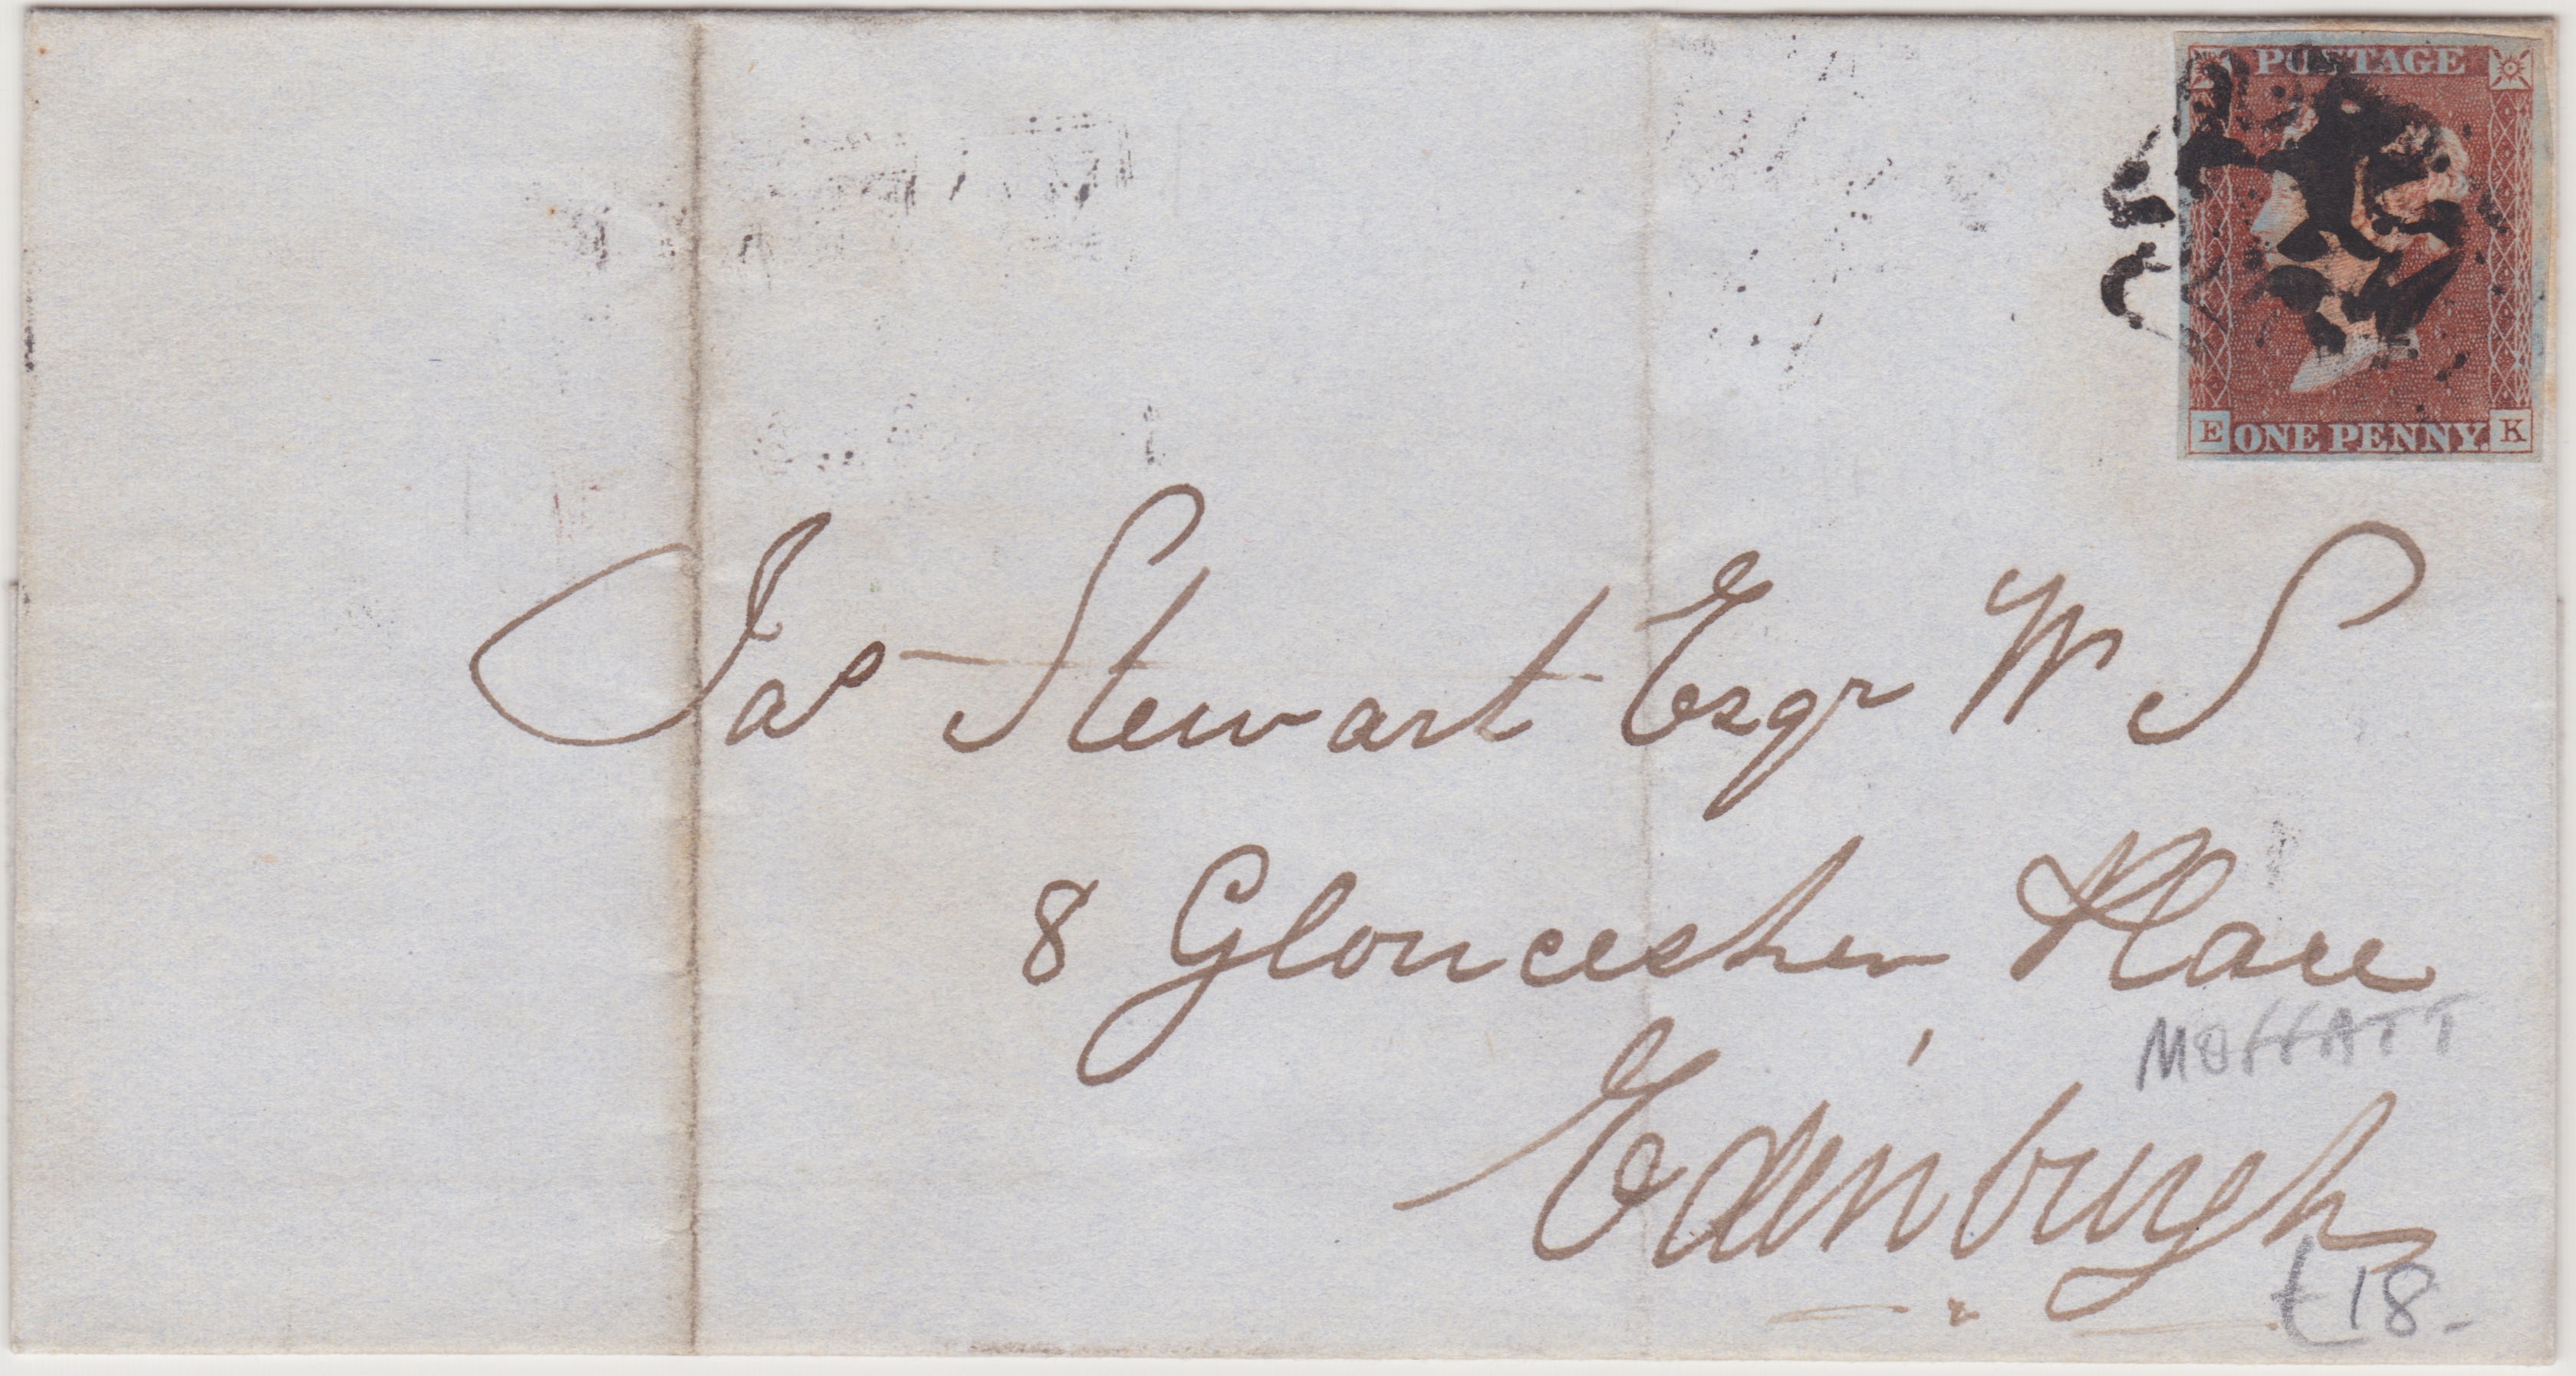 POSTAGE
E ONE PENNY. K
Jas Stewart Esqr W S
8 Gloucester Place
MOFFATT
Edinburgh
£18-